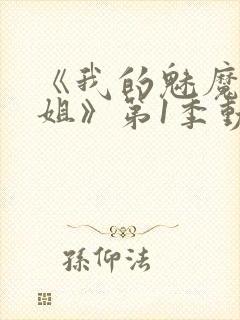 《我的魅魔
姐》第1季動
孙仰法